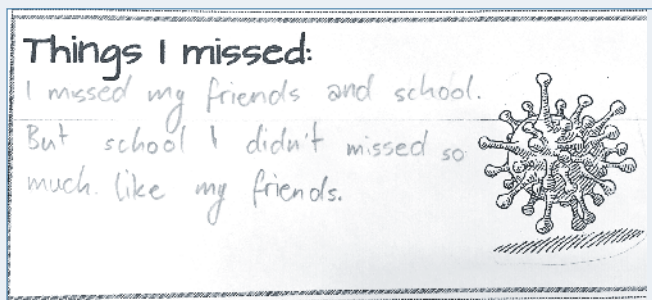 Things I missed:
I missed my friends and school.
But school I didn't missed so
much. like my friends.